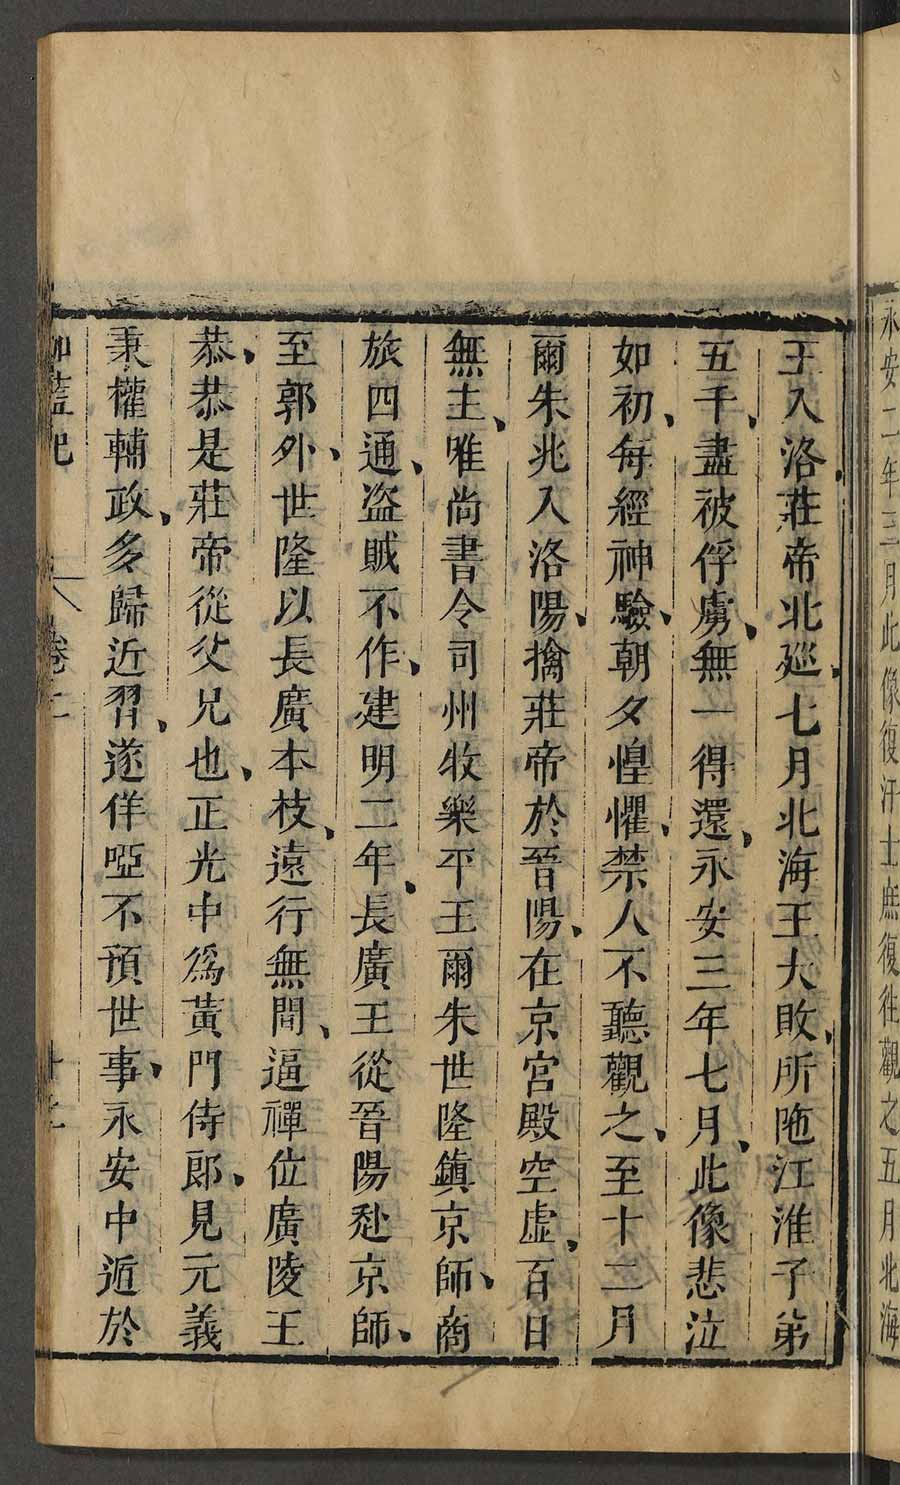 永安二年三月此像復汗士庶復往觀之五月北海
王入洛莊帝北巡七月北海王大敗所陁江淮子弟
五千盡被俘虜無一得還永安三年七月此像悲泣
如初每經神驗朝夕惶懼禁人不聽觀之至十二月
爾朱兆入洛陽擒莊帝於晉陽在京宮殿空虛百日
無主唯尚書令司州牧樂平王爾朱世隆鎮京師商
旅四通盜賊不作建明二年長廣王從晉陽赴京師
至郭外世隆以長廣本枝遠行無聞逼禪位廣陵王
恭恭是莊帝從父兄也正光中爲黃門侍郎見元義
秉權輔政多歸近習遂佯啞不預世事永安中遁於
伽藍記
卷二